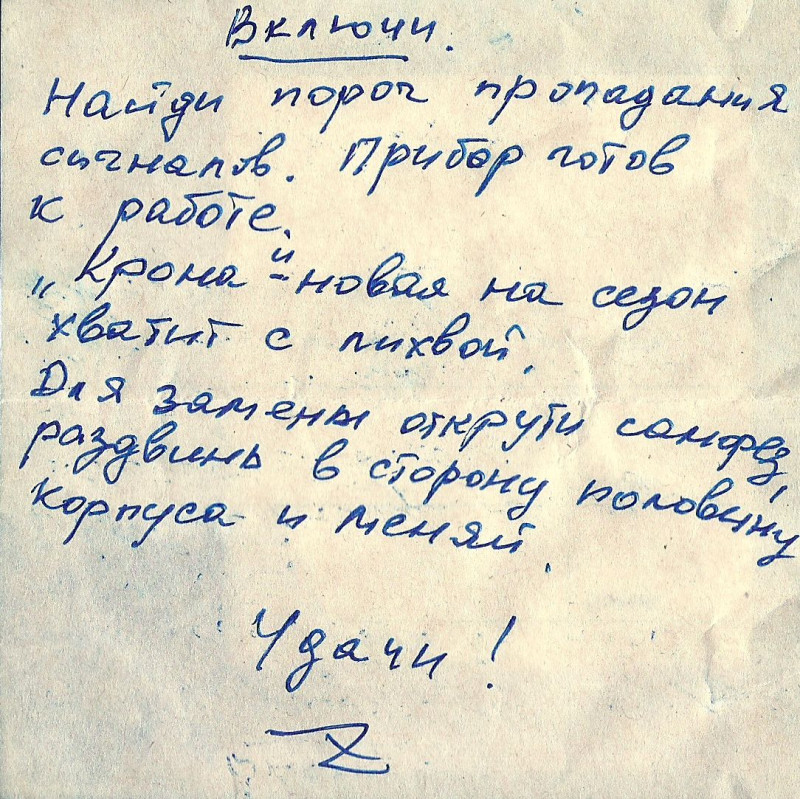 Включи.
Найди порог пропадания
сигналов. Прибор готов
к работе.
„Крона" - новая на сезон
хватит с лихвой.
Для замены открути саморез,
раздвинь в сторону половину
корпуса и меняй.
Удачи!